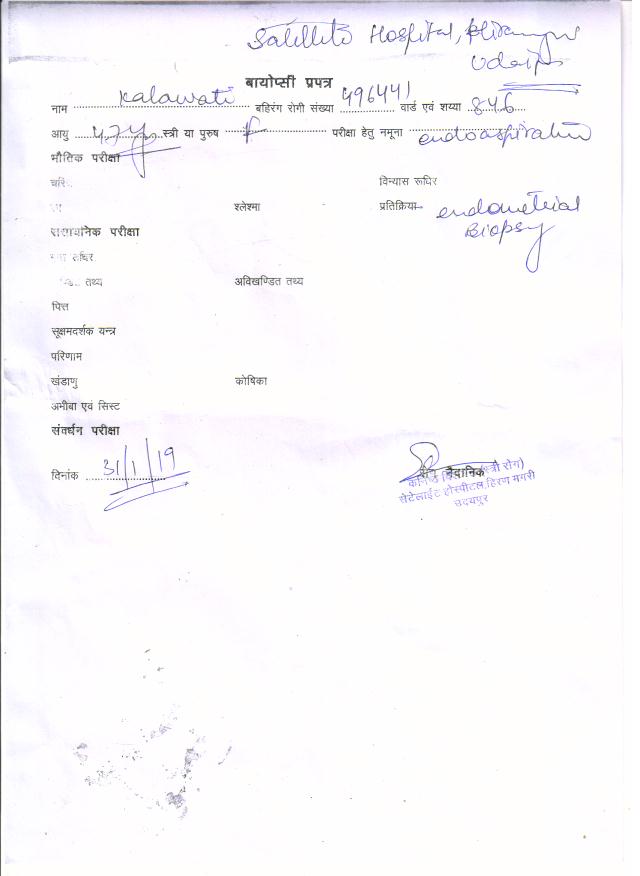 Satellite Hospital, Hiranmagri
Udaipur
बायोप्सी प्रपत्र
नाम Kalawati बहिरंग रोगी संख्या 496441 वार्ड एवं शय्या 846
आयु 47y स्त्री या पुरुष f परीक्षा हेतु नमूना endoaspiration
भौतिक परीक्षा
विन्यास रूधिर
श्लेश्मा प्रतिक्रिया endometrial
Biopsy
रासायनिक परीक्षा
रूधिर
तथ्य अविखण्डित तथ्य
पित्त
सूक्षमदर्शक यन्त्र
परिणाम
खंडाणु कोषिका
अमीबा एवं सिस्ट
संवर्धन परीक्षा
दिनांक 31/1/19
नैदानिक
सेटेलाईट होस्पीटल, हिरण मगरी
उदयपुर